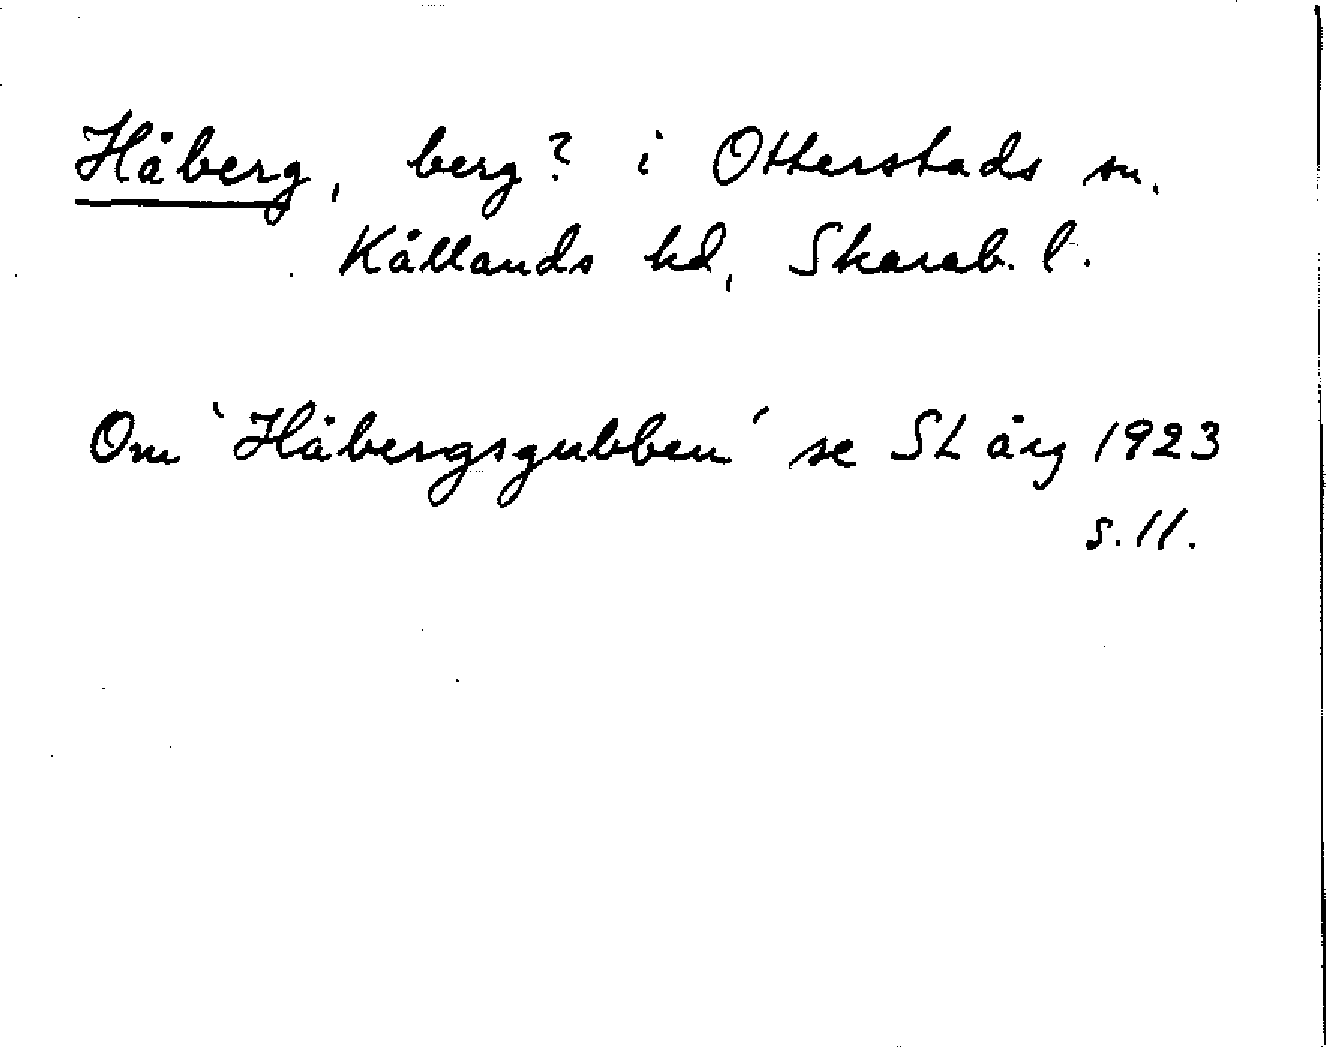 Håberg, berg? i Otterstads sn.
Kållands hd, Skarab. l.
Om 'Håbergsgubben' se SL årg 1923
s. 11.